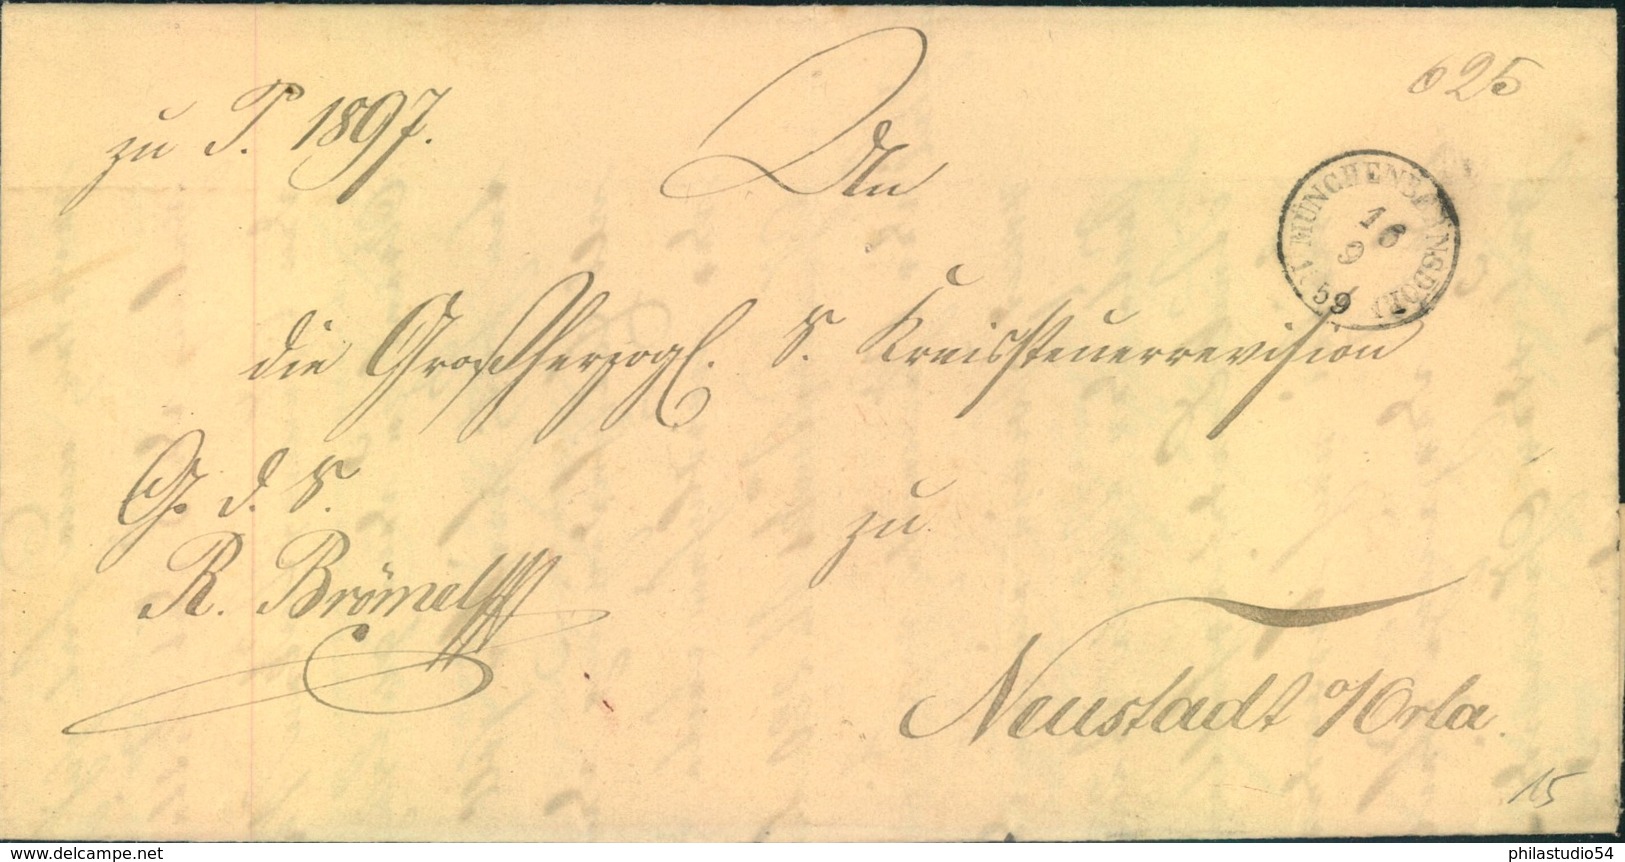 625
zu T. 1897.
An
MÜNCHENBERNSDORF
16
9
59
die Großherzogl. S. Kreissteuerrevision
G. d. S.
zu
R. Brömel
Neustadt a/Orla.
15
www.delcampe.net
philastudio54